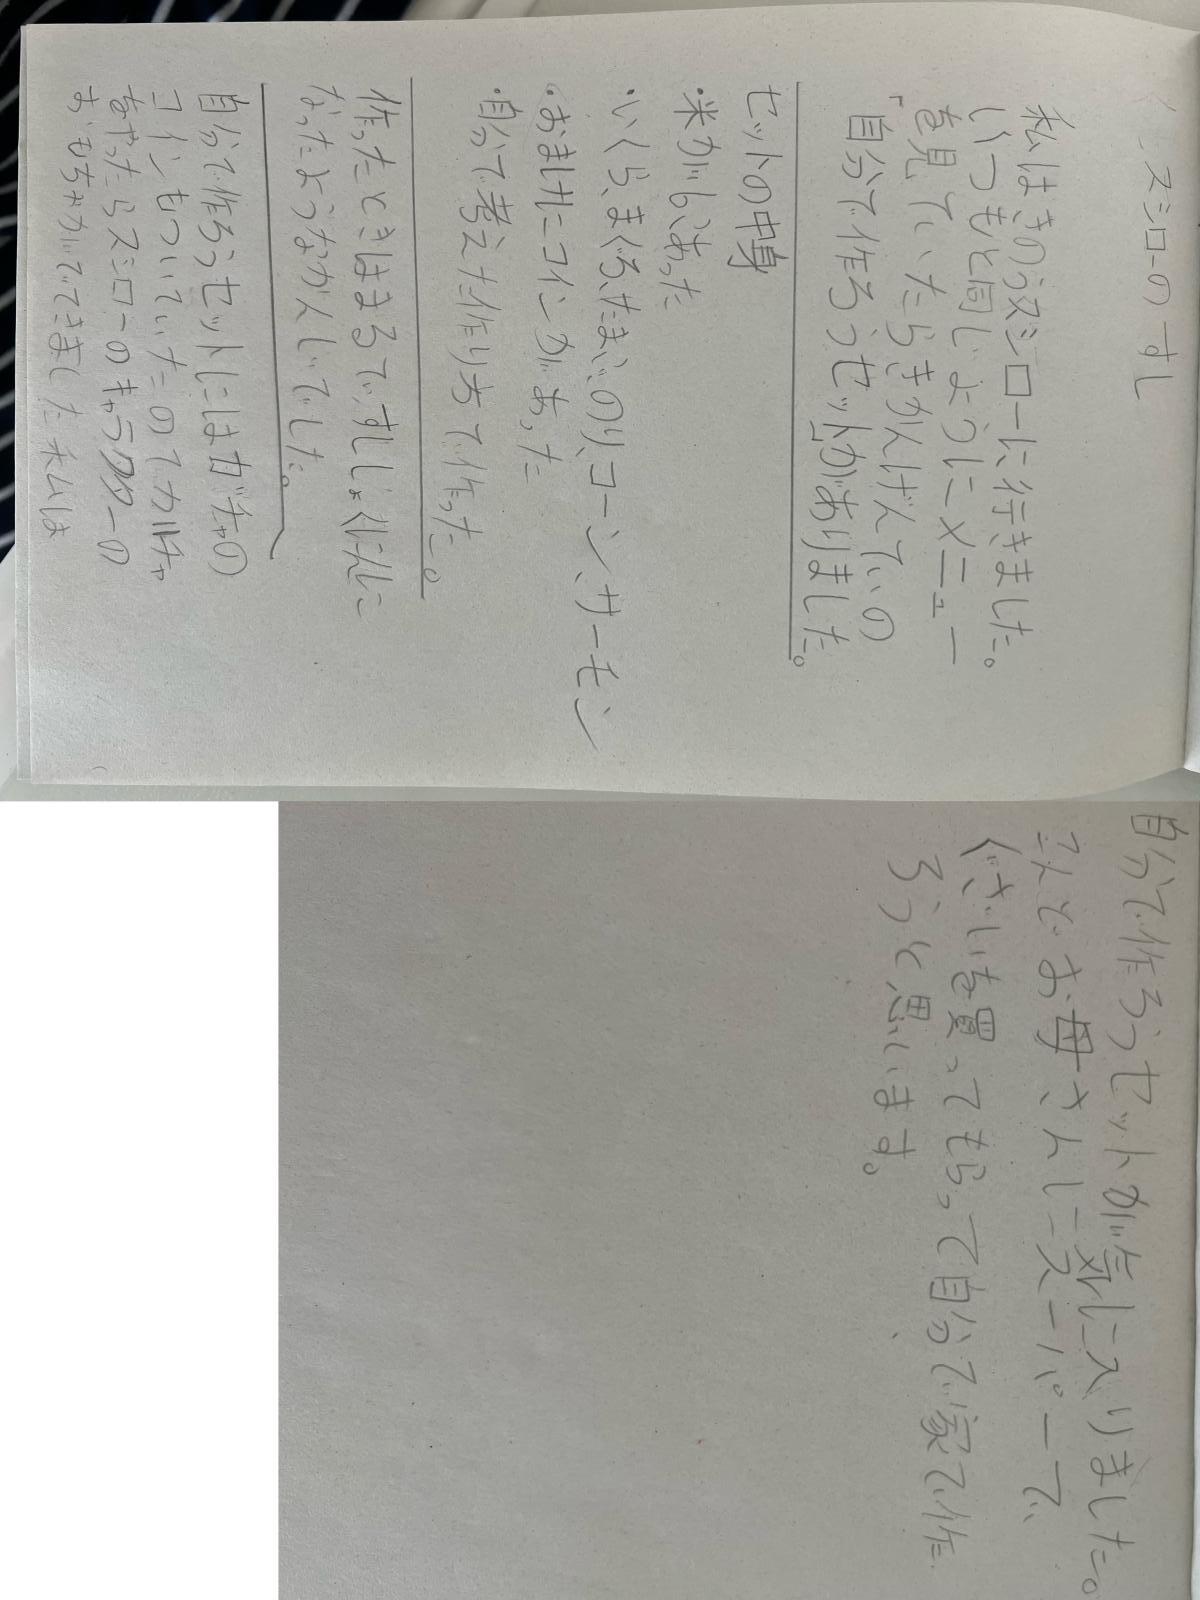 スシローのすし
私はきのうスシローに行きました。
いつもと同じようにメニュー
を見ていたらきかんげんていの
「自分で作ろうセットがありました。
セットの中身
・米がしあった
・いくら、まぐろ、たまご、のり、コーン、サーモン
・おまけにコインがあった
・自分で考えた作り方で作った。
作ったときはまるですしょくにんに
なったようなかんじでした。
自分で作ろうセットにはガチャの
コインもついていたのでガチャ
をやったらスシローのキャラクターの
おもちゃがでてきました私は
自分で作ろうセットが気に入りました。
こんどお母さんにスーパーで、
ぐざいを買ってもらって自分で家で作
ろうと思います。